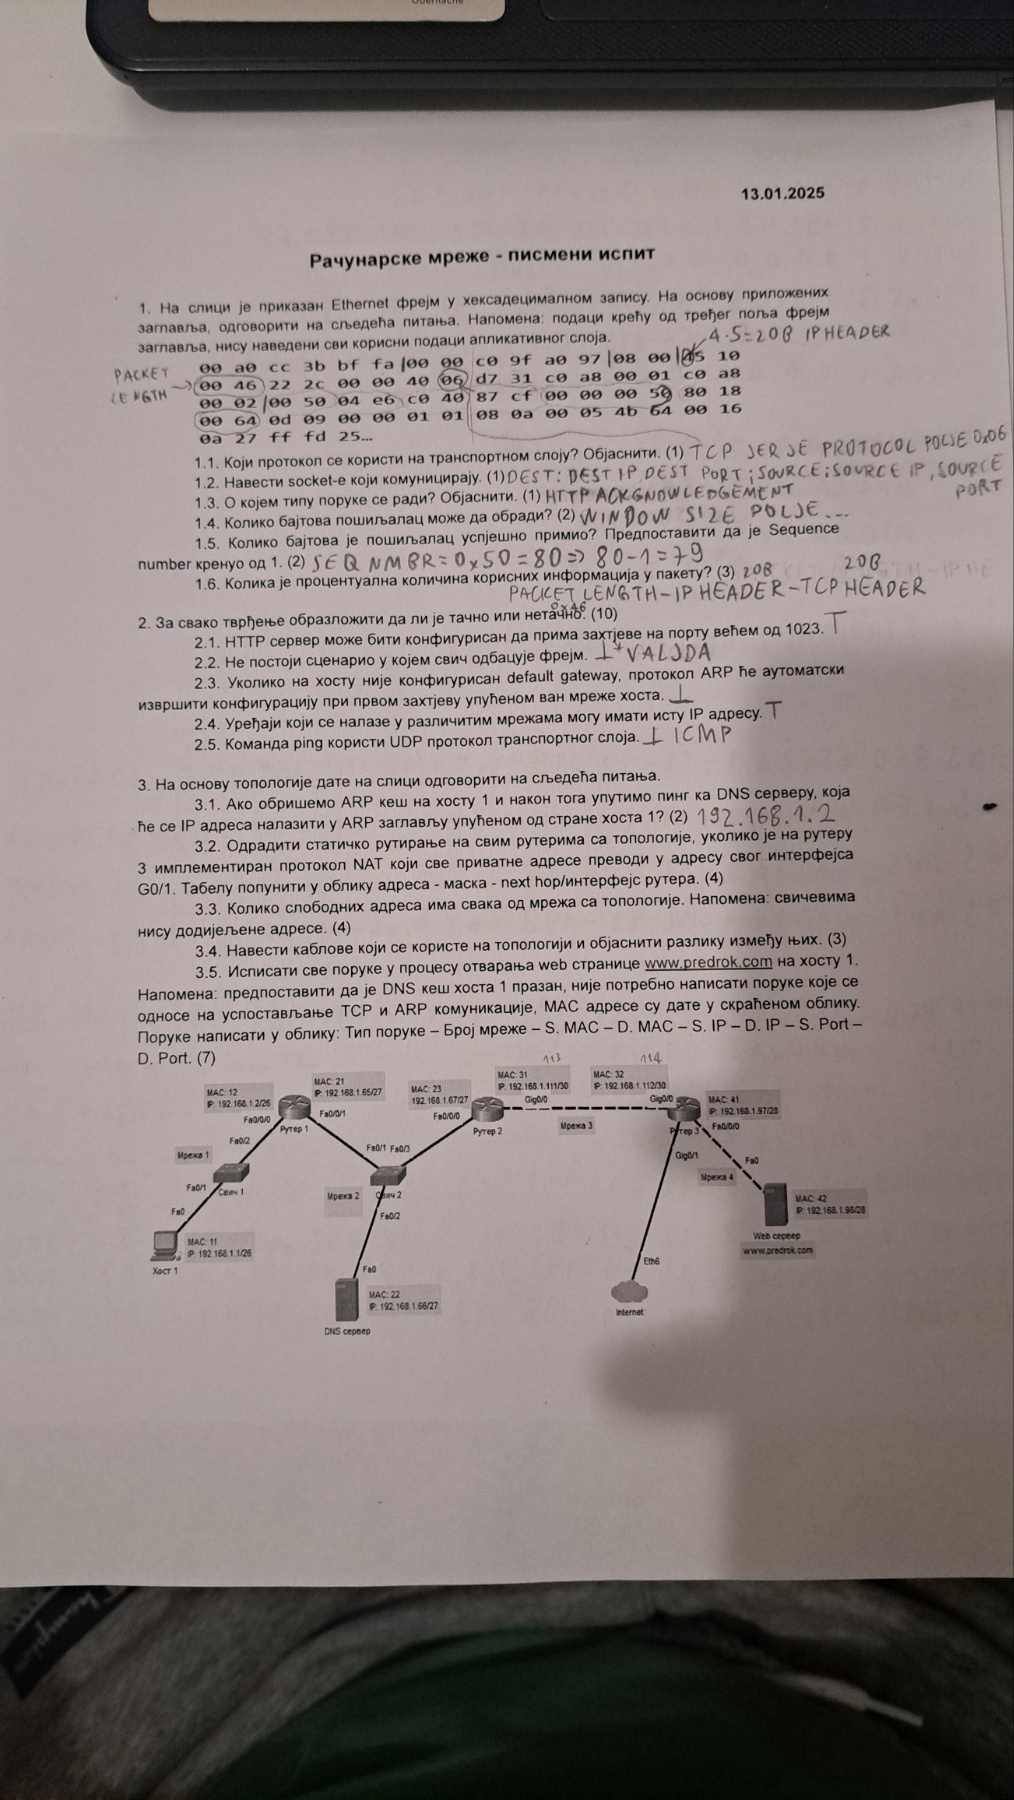 13.01.2025
Рачунарске мреже - писмени испит
1. На слици је приказан Ethernet фрејм у хексадецималном запису. На основу приложених
заглавља, одговорити на сљедећа питања. Напомена: подаци крећу од трећег поља фрејм
заглавља, нису наведени сви корисни подаци апликативног слоја.
4·5=20B IP HEADER
00 a0 cc 3b bf fa |00 00 c0 9f a0 97 |08 00 |45 10
PACKET LENGTH → 00 46 22 2c 00 00 40 06 d7 31 c0 a8 00 01 c0 a8
00 02 |00 50 04 e6 c0 40 87 cf 00 00 00 50 80 18
00 64 0d 09 00 00 01 01 08 0a 00 05 4b 64 00 16
0a 27 ff fd 25...
1.1. Који протокол се користи на транспортном слоју? Објаснити. (1) TCP JER JE PROTOCOL POLJE 0x06
1.2. Навести socket-е који комуницирају. (1) DEST: DEST IP, DEST PORT; SOURCE: SOURCE IP, SOURCE PORT
1.3. О којем типу поруке се ради? Објаснити. (1) HTTP ACKGNOWLEDGEMENT
1.4. Колико бајтова пошиљалац може да обради? (2) WINDOW SIZE POLJE...
1.5. Колико бајтова је пошиљалац успјешно примио? Предпоставити да је Sequence
number кренуо од 1. (2) SEQ NMBR = 0x50 = 80 => 80-1=79
1.6. Колика је процентуална количина корисних информација у пакету? (3) 20B 20B
PACKET LENGTH - IP HEADER - TCP HEADER
0x46
2. За свако тврђење образложити да ли је тачно или нетачно. (10)
2.1. HTTP сервер може бити конфигурисан да прима захтјеве на порту већем од 1023. T
2.2. Не постоји сценарио у којем свич одбацује фрејм. ⊥ * VALJDA
2.3. Уколико на хосту није конфигурисан default gateway, протокол ARP ће аутоматски
извршити конфигурацију при првом захтјеву упућеном ван мреже хоста. ⊥
2.4. Уређаји који се налазе у различитим мрежама могу имати исту IP адресу. T
2.5. Команда ping користи UDP протокол транспортног слоја. ⊥ ICMP
3. На основу топологије дате на слици одговорити на сљедећа питања.
3.1. Ако обришемо ARP кеш на хосту 1 и након тога упутимо пинг ка DNS серверу, која
ће се IP адреса налазити у ARP заглављу упућеном од стране хоста 1? (2) 192.168.1.2
3.2. Одрадити статичко рутирање на свим рутерима са топологије, уколико је на рутеру
3 имплементиран протокол NAT који све приватне адресе преводи у адресу свог интерфејса
G0/1. Табелу попунити у облику адреса - маска - next hop/интерфејс рутера. (4)
3.3. Колико слободних адреса има свака од мрежа са топологије. Напомена: свичевима
нису додијељене адресе. (4)
3.4. Навести каблове који се користе на топологији и објаснити разлику између њих. (3)
3.5. Исписати све поруке у процесу отварања web странице www.predrok.com на хосту 1.
Напомена: предпоставити да је DNS кеш хоста 1 празан, није потребно написати поруке које се
односе на успостављање TCP и ARP комуникације, MAC адресе су дате у скраћеном облику.
Поруке написати у облику: Тип поруке – Број мреже – S. MAC – D. MAC – S. IP – D. IP – S. Port –
D. Port. (7)
113 114
MAC: 12
IP: 192.168.1.2/26
MAC: 21
IP: 192.168.1.65/27
MAC: 23
192.168.1.67/27
MAC: 31
IP: 192.168.1.111/30
MAC: 32
IP: 192.168.1.112/30
MAC: 41
IP: 192.168.1.97/28
Fa0/0/0
Рутер 1
Fa0/0/1
Fa0/0/0
Рутер 2
Gig0/0
Мрежа 3
Gig0/0
Рутер 3
Fa0/0/0
Fa0/2
Мрежа 1
Fa0/1
Свич 1
Fa0/1 Fa0/3
Мрежа 2
Свич 2
Fa0/2
Gig0/1
Мрежа 4
Fa0
MAC: 42
IP: 192.168.1.98/28
Web сервер
www.predrok.com
Fa0
MAC: 11
IP: 192.168.1.1/26
Хост 1
Fa0
MAC: 22
IP: 192.168.1.66/27
DNS сервер
Eth6
Internet